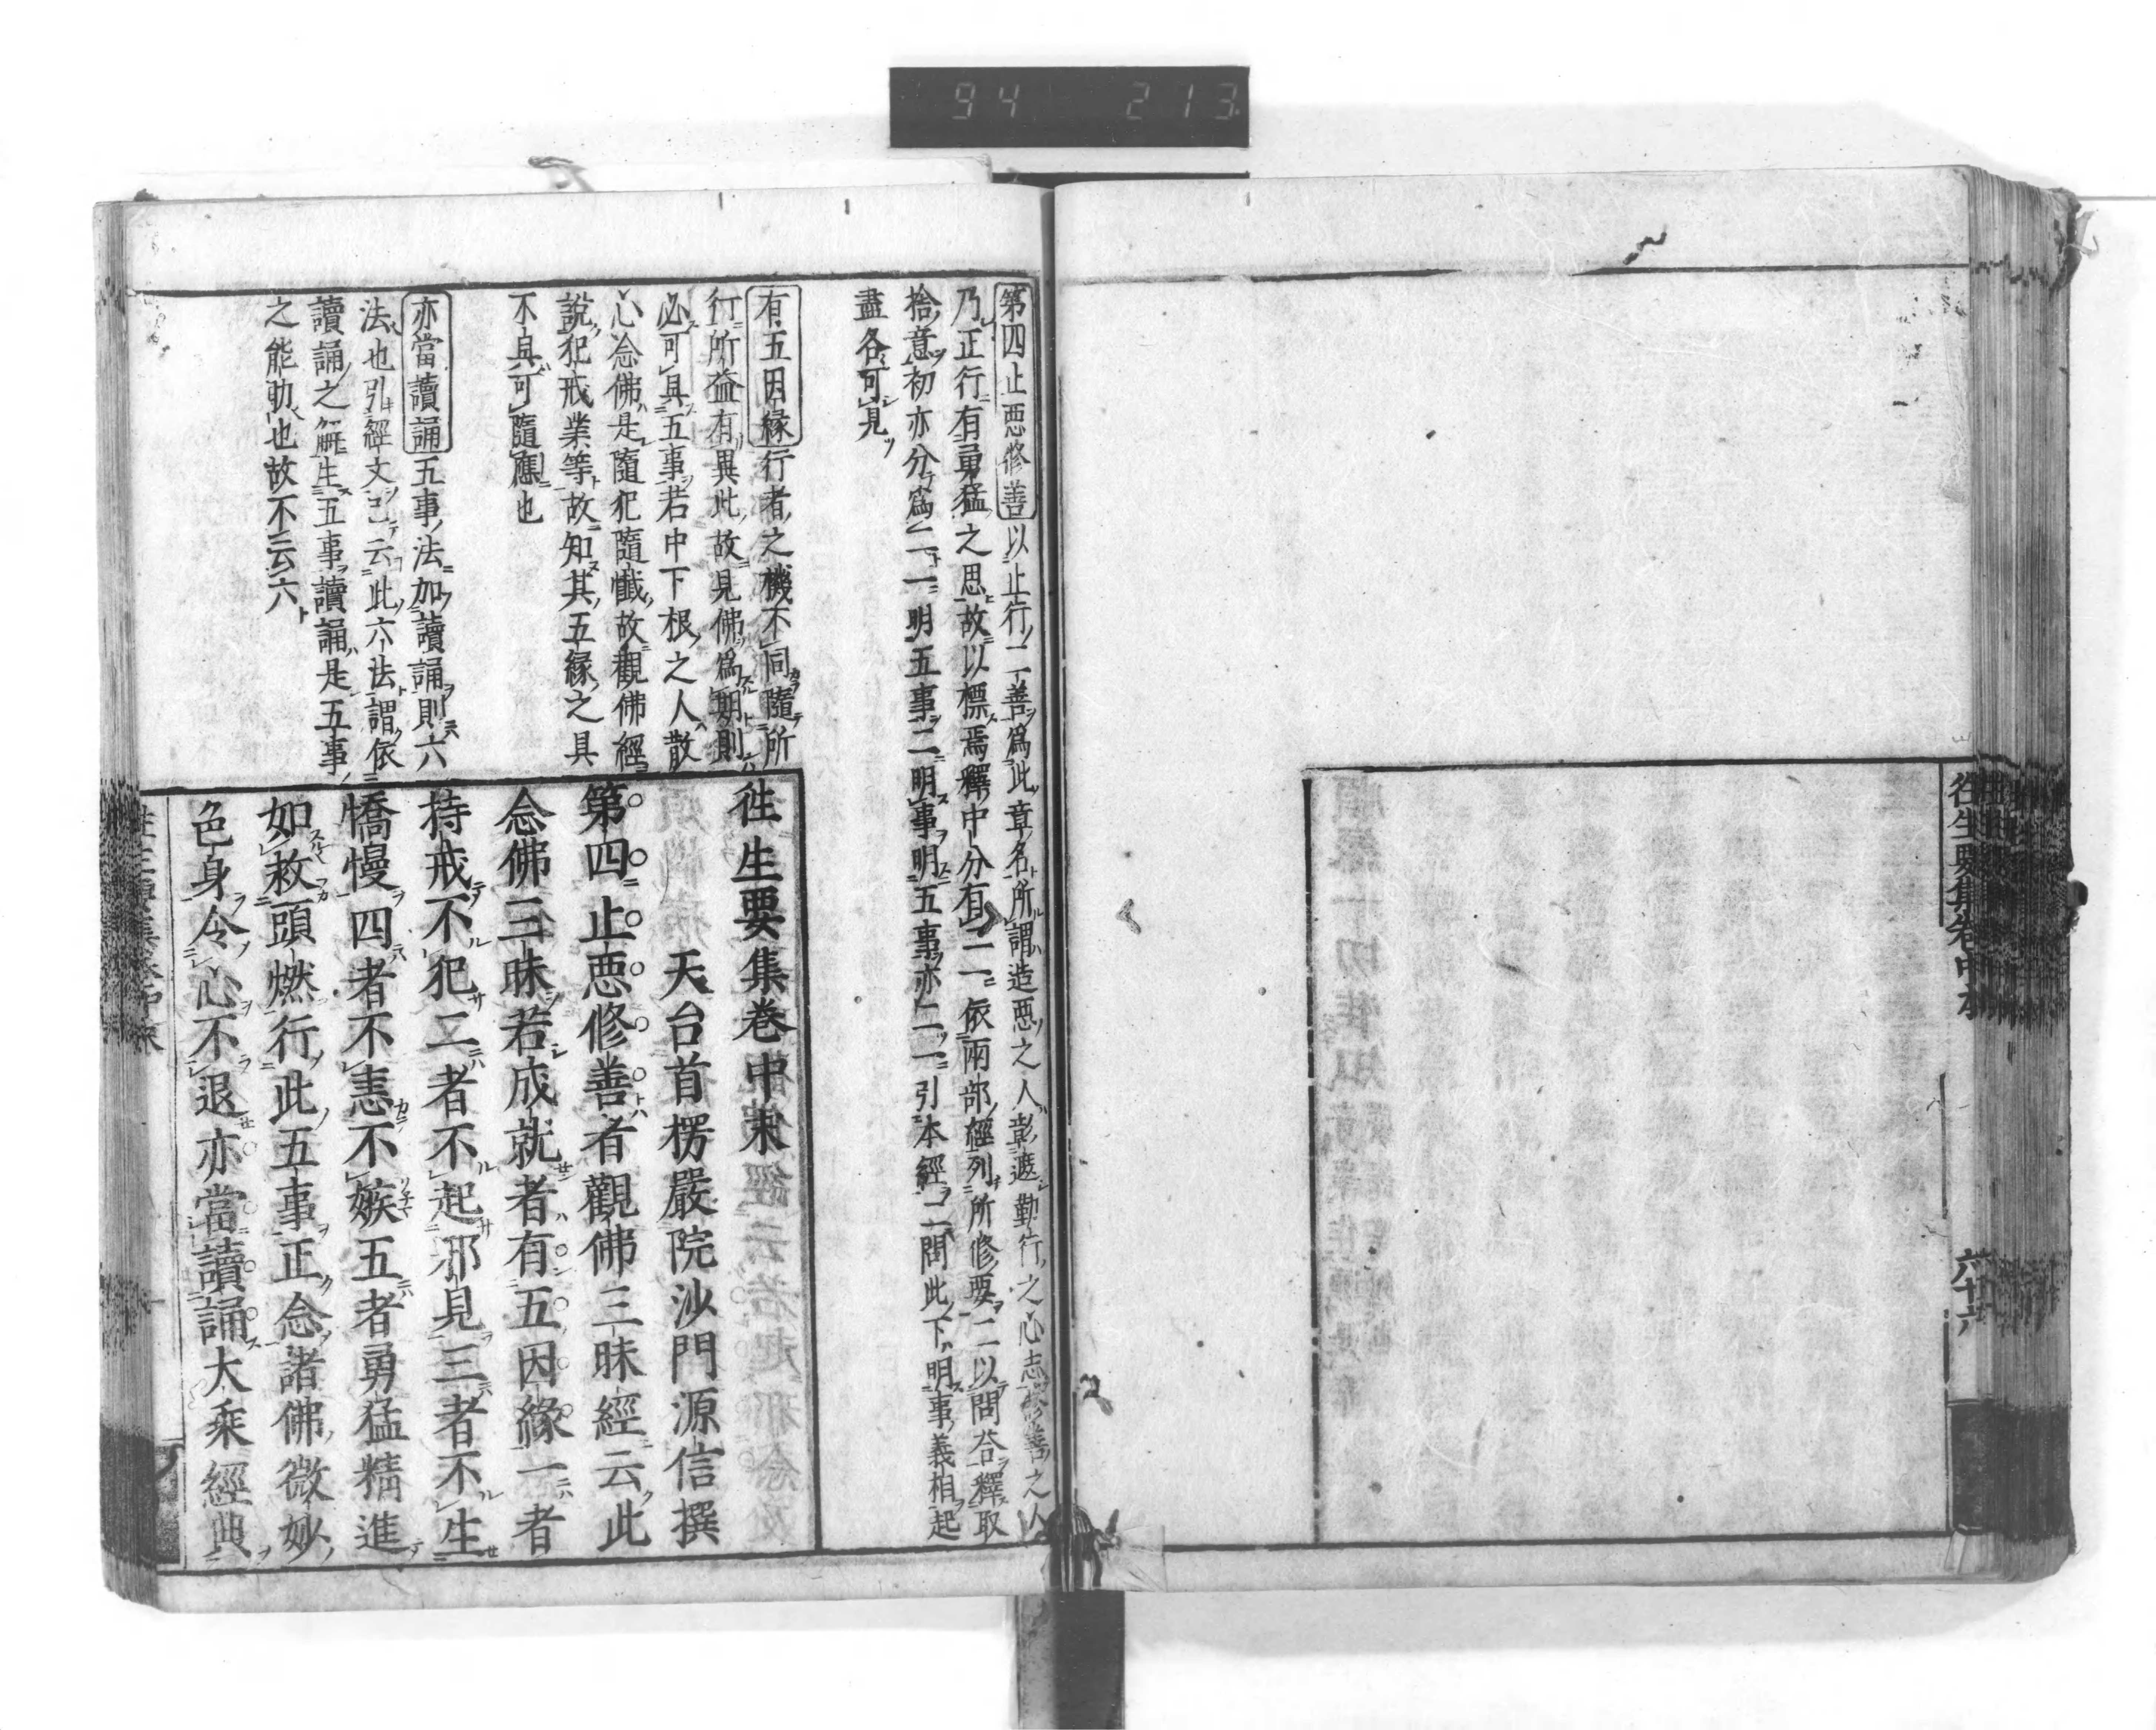 94 213
往生要集卷中本
六十六
第四止惡修善以止行二善爲此章名所謂造惡之人彰遮勤行之心志修善之人
乃正行有勇猛之思故以標焉釋中分有二一依兩部經列所修要二以問荅釋取
捨意初亦分爲二一明五事二明事明五事亦二一引本經二問此下明事義相起
盡各可見
有五因緣行者之機不同隨所
行所益有異此故見佛爲期則
必可具五事若中下根之人散
心念佛是隨犯隨懺故觀佛經
說犯戒業等故知其五緣之具
不具可隨應也
亦當讀誦五事法加讀誦則六
法也引經文已云此六法謂依
讀誦之解生五事讀誦是五事
之能助也故不云六
往生要集卷中末
天台首楞嚴院沙門源信撰
第四止惡修善者觀佛三昧經云此
念佛三昧若成就者有五因緣一者
持戒不犯二者不起邪見三者不生
憍慢四者不恚不嫉五者勇猛精進
如救頭燃行此五事正念諸佛微妙
色身令心不退亦當讀誦大乘經典